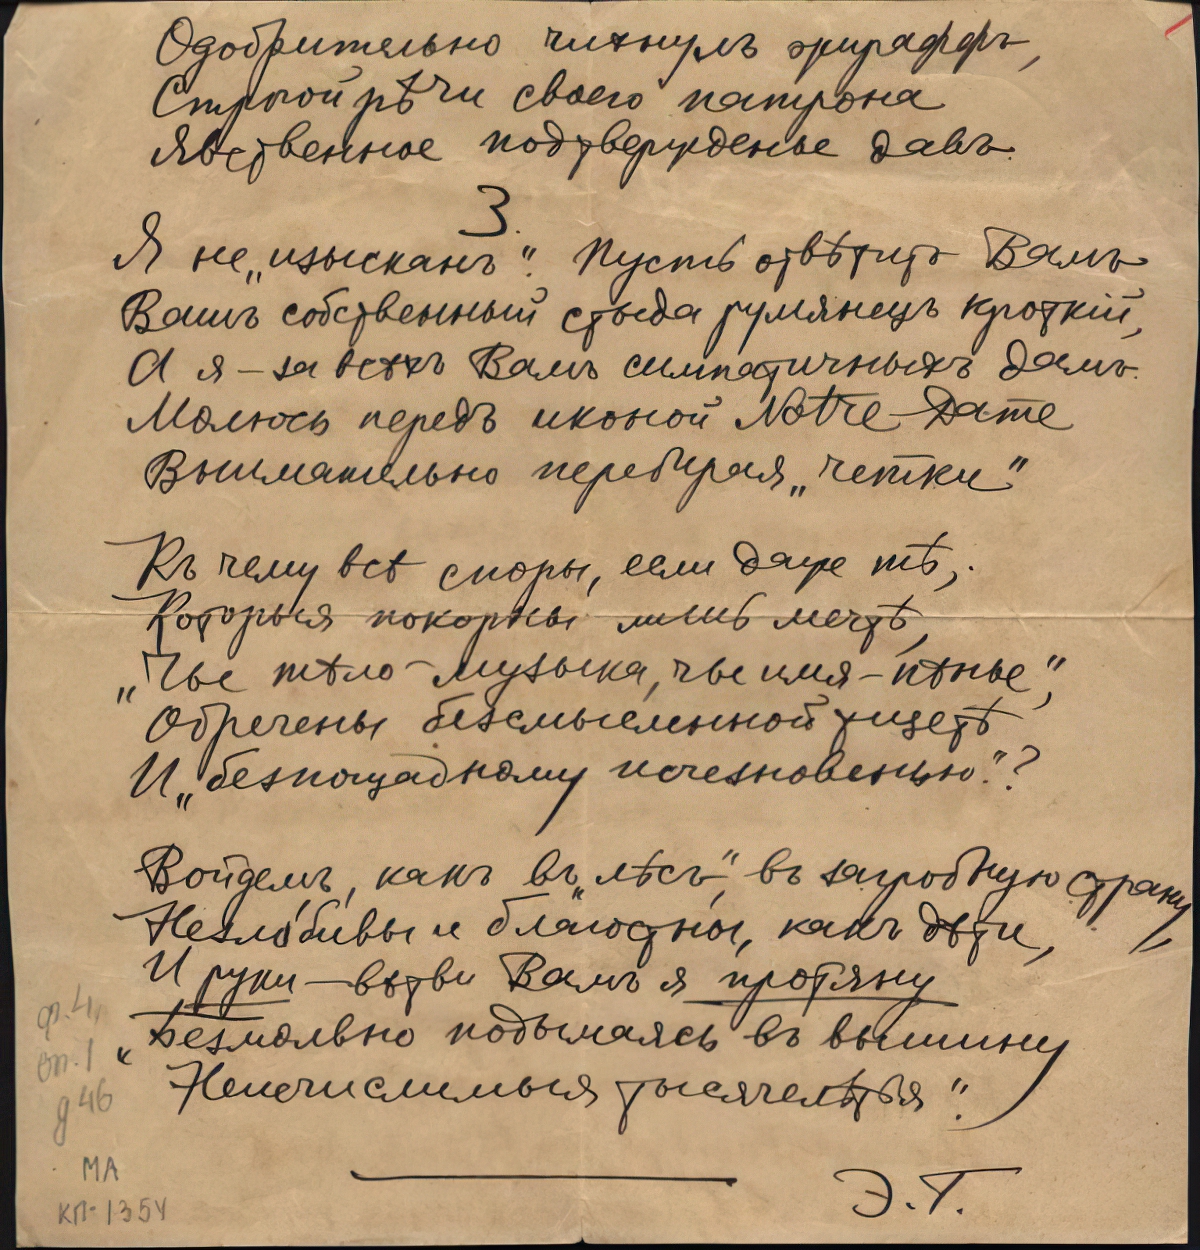 Одобрительно чихнулъ жираффъ,
Строгой рѣчи своего патрона
Явственное подтвержденье давъ.
3.
Я не „изысканъ“. Пусть отвѣтитъ Вамъ
Вашъ собственный стыда румянецъ кроткій,
А я – за всѣхъ Вамъ симпатичныхъ дамъ
Молюсь передъ иконой Notre-Dame
Внимательно перебирая „четки“
Къ чему всѣ споры, если даже тѣ,
Которыя покорны лишь мечтѣ,
„Чье тѣло – музыка, чье имя – пѣнье“,
Обречены безсмысленной тщетѣ
И „безпощадному исчезновенью“?
Войдемъ, какъ въ „лѣсъ“, въ загробную страну
Незлобивы и благостны, какъ дѣти,
И руки – вѣтви Вамъ я протяну
„Безмолвно подымаясь въ вышину
Неисчислимыя тысячелѣтья“.
Э.Г.
ф.4,
оп.1
д 46
МА
КП-1354